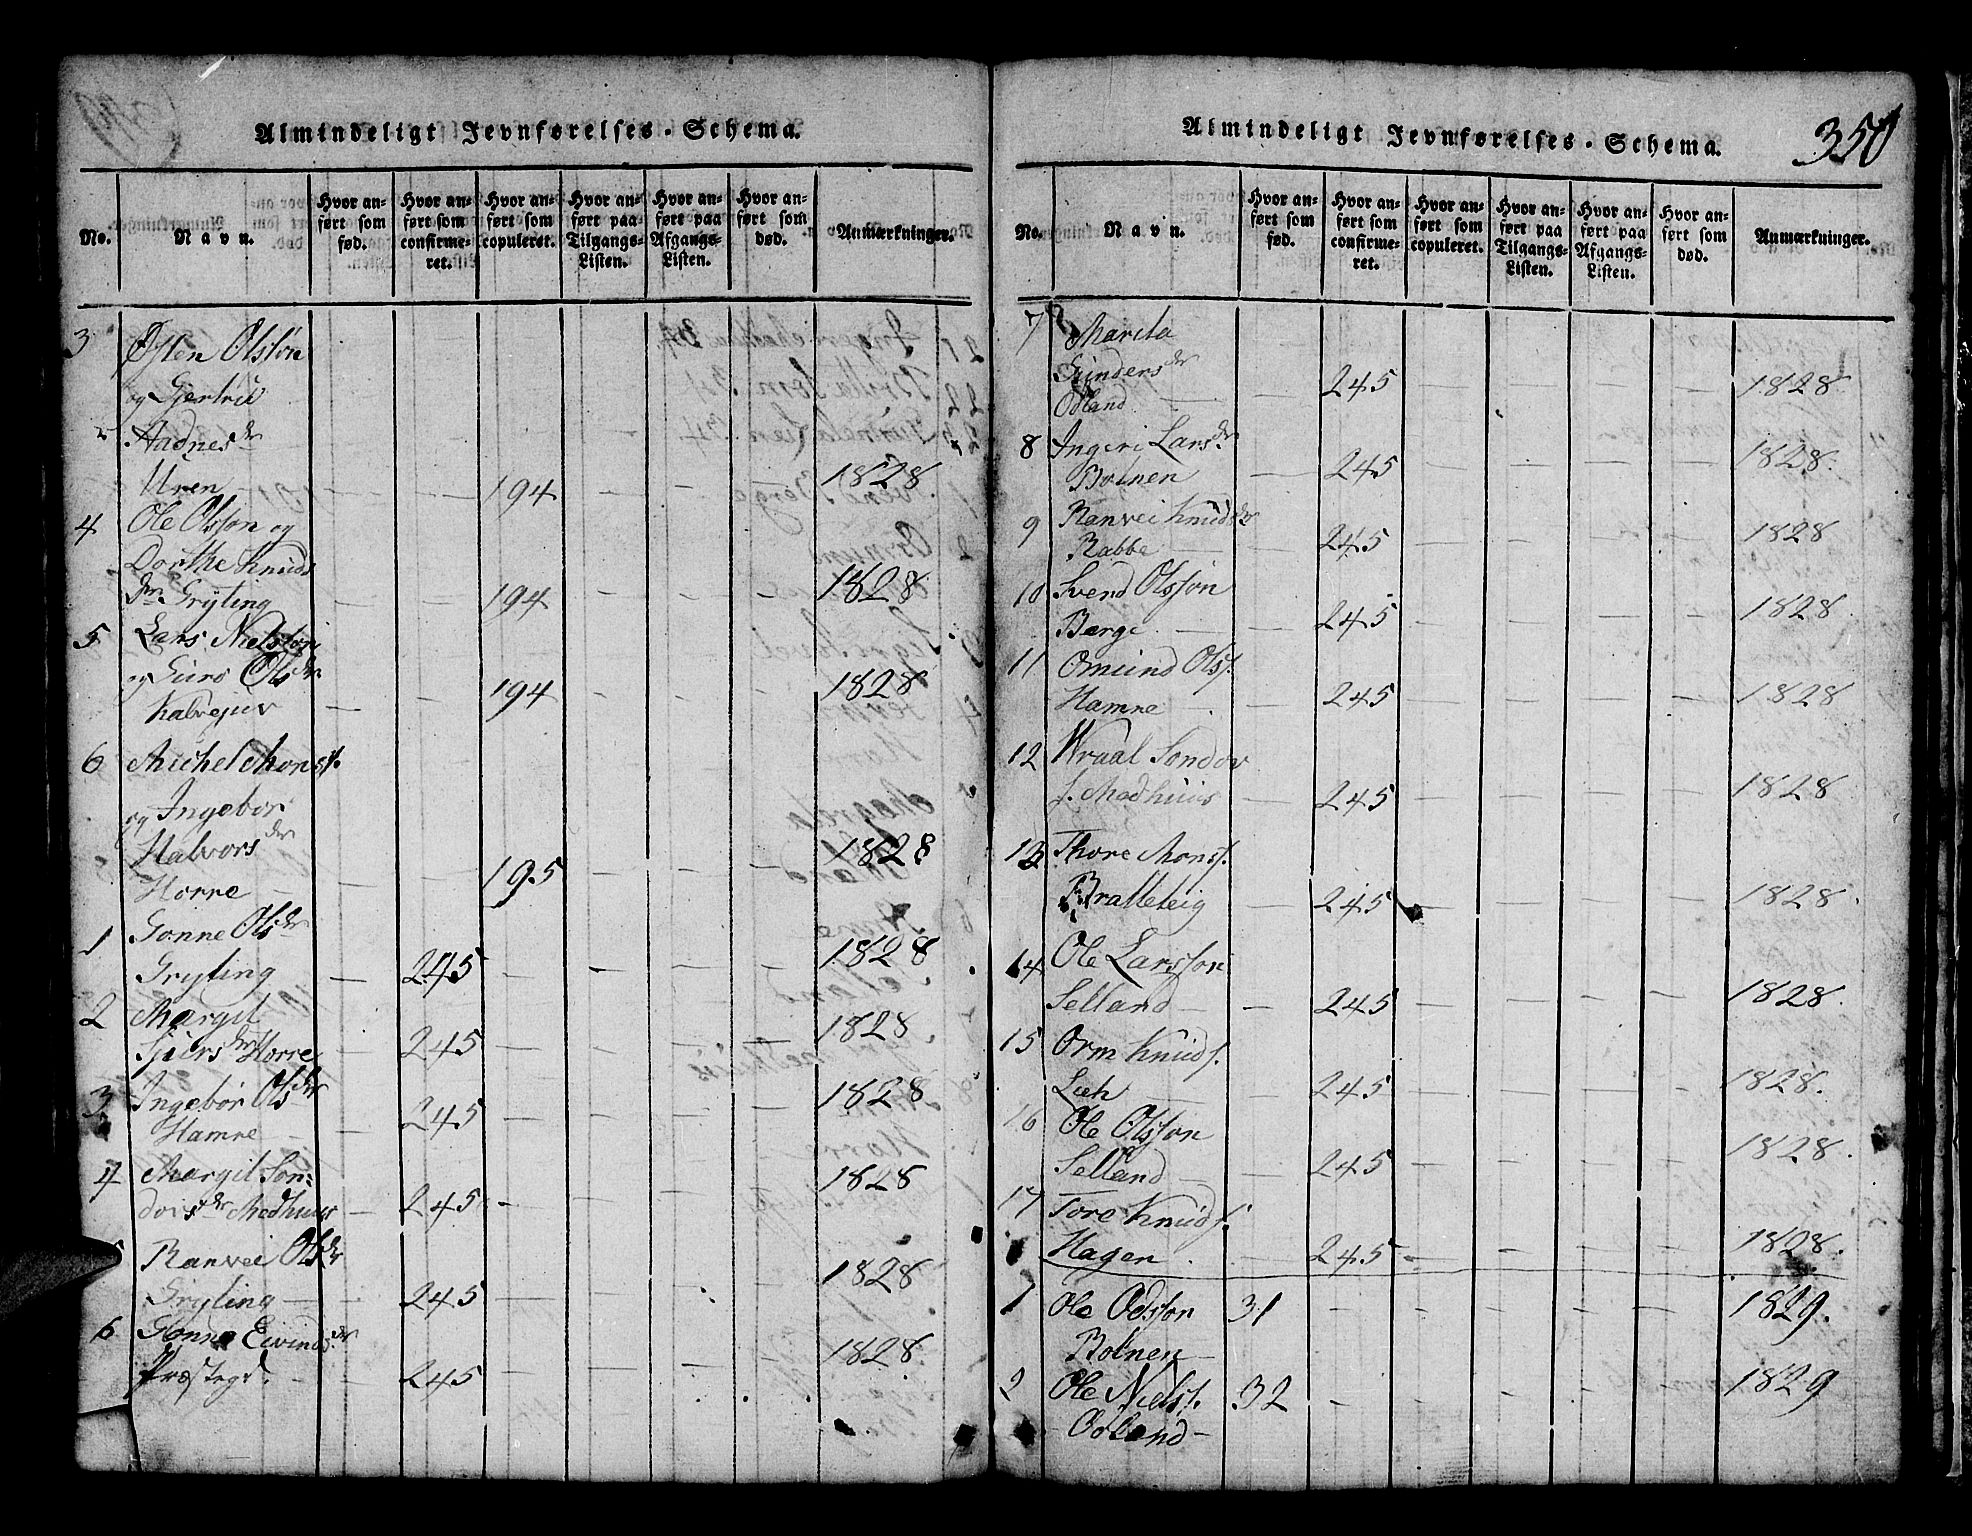 Almindeligt Jevnførelses-Schema.
No.
Navn.
Hvor anført som fød.
Hvor anført som confirmeret.
Hvor anført som copuleret.
Hvor anført paa Tilgangs-Listen.
Hvor anført paa Afgangs-Listen.
Hvor anført som død.
Anmærkninger.
3 Østen Olssøn
og Gjertrü
Aadnesdr
Uren 194 1828.
4 Ole Olsson og
Dorthe Knuds
dr Gryting 194 1828
5 Lars Nielsson
og Guro Olsdr
Kalvejuv 194 1828
6 Michel Mons f.
og Ingebor
Halvorsdr
Horre 195 1828
1 Gonne Olsdr
Gryting 245 1828
2 Margit
Sjursdr Horre 245 1828
3 Ingebor Olsdr
Hamre 245 1828
4 Margit Son-
dovsdr Medhuus 245 1828
Ranvei Olsdr
Gryting 245 1828
6 Gonne Eivindsdr
Præstegd. 245 1828
Almindeligt Jevnførelses-Schema.
350
No.
Navn.
Hvor anført som fød.
Hvor anført som confirmeret.
Hvor anført som copuleret.
Hvor anført paa Tilgangs-Listen.
Hvor anført paa Afgangs-Listen.
Hvor anført som død.
Anmærkninger.
7 Marita
Gündersdr
Odland 245 1828
8 Ingeri Larsdr
Botnen 245 1828.
9 Ranvei Knudsdr
Rabbe 245 1828
10 Svend Olssøn
Berge 245 1828
11 Omund Ols f.
Hamre 245 1828
12 Wraal Sondov
f. Medhüüs 245 1828
13 Thore Mons f.
Bratteteig 245 1828.
14 Ole Larsson
Selland 245 1828.
15 Orm Knüd f.
Lieh 245 1828.
16 Ole Olsson
Selland 245 1828.
17 Tore Knüd f.
Hagen 245 1828.
1 Ole Odsson 31 1829.
Botnen
2 Ole Niels f. 32 1829
Odland